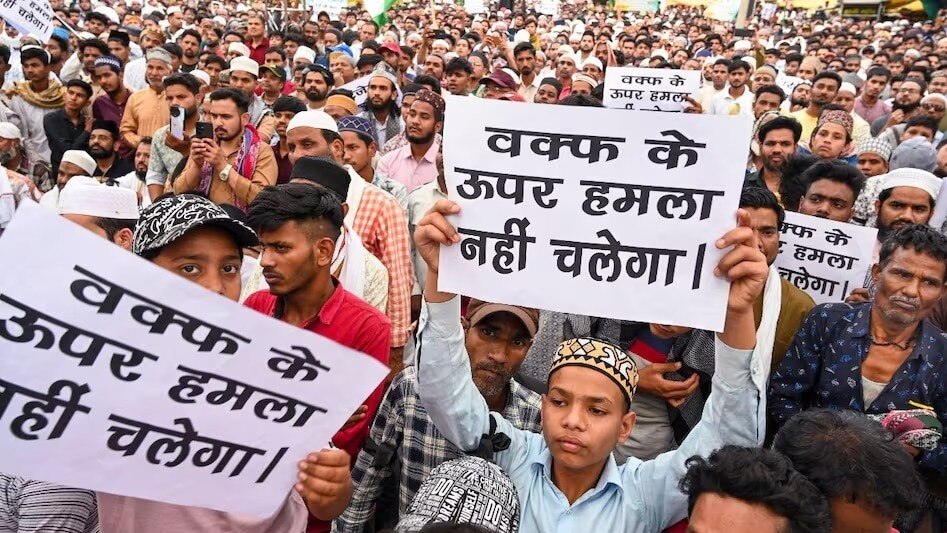 वक्फ के
ऊपर हमला
नहीं चलेगा।
वक्फ के
ऊपर हमला
नहीं चलेगा।
वक्फ के
ऊपर हमला
वक्फ के
ऊपर हमला
चलेगा।